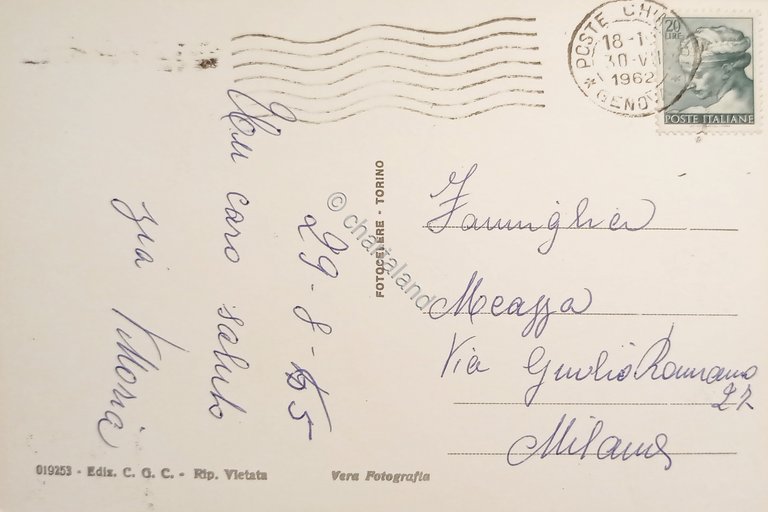 29-8-65
Un caro saluto
zia Vittoria
Famiglia
Meazza
Via Giulio Romano
27
Milano
POSTE
18-1
30-VII
1962
GENOVA
20
LIRE
POSTE ITALIANE
FOTOCELERE - TORINO
© chartaland
019253 - Ediz. C. G. C. - Rip. Vietata
Vera Fotografia